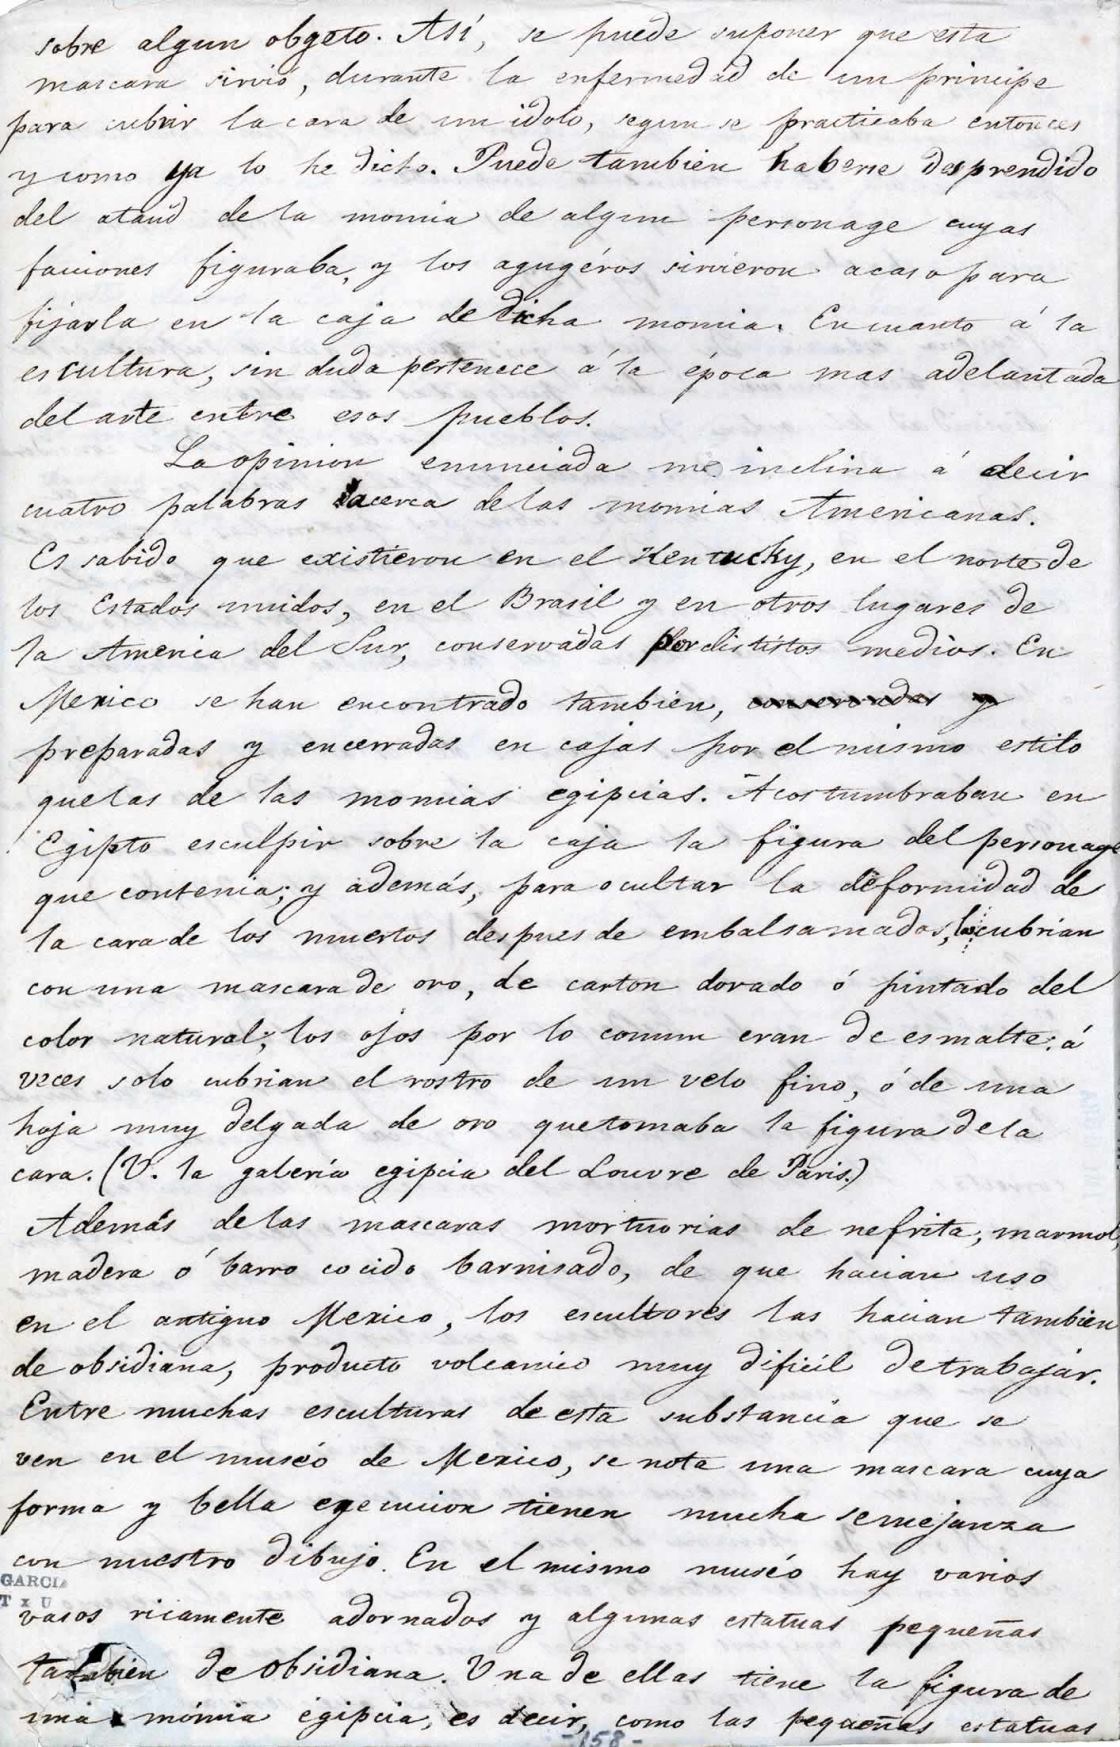 sobre algun obgeto. Así, se puede suponer que esta
mascara sirvió, durante la enfermedad de un principe
para cubrir la cara de un idolo, segun se practicaba entonces
y como ya lo he dicho. Puede tambien haberse desprendido
del ataúd de la momia de algun personage cuyas
facciones figuraba, y los agugéros sirvieron acaso para
fijarla en la caja de dicha momia. En cuanto á la
escultura, sin duda pertenece á la época mas adelantada
del arte entre esos pueblos.
La opinion enunciada me inclina á decir
cuatro palabras acerca de las momias Americanas.
Es sabido que existieron en el Kentucky, en el norte de
los Estados unidos, en el Brasil y en otros lugares de
la America del Sur, conservadas por distístos medios. En
Mexico se han encontrado tambien, conservadas y
preparadas y encerradas en cajas por el mismo estilo
que las de las momias egipcias. Acostumbraban en
Egipto esculpir sobre la caja la figura del personage
que contenia; y además, para ocultar la déformidad de
la cara de los muertos despues de embalsamados, la cubrian
con una mascara de oro, de carton dorado ó pintado del
color natural; los ojos por lo comun eran de esmalte: á
veces solo cubrian el rostro de un velo fino, ó de una
hoja muy delgada de oro que tomaba la figura de la
cara. (V. la galería egipcia del Louvre de Paris.)
Además de las mascaras mortuorias de nefrita, marmol,
madera ó barro cocido barnisado, de que hacian uso
en el antiguo Mexico, los escultores las hacian tambien
de obsidiana, producto volcanico muy dificil de trabajar.
Entre muchas esculturas de esta substancia que se
ven en el muséo de Mexico, se nota una mascara cuya
forma y bella egecucion tienen mucha semejanza
con nuestro dibujo. En el mismo muséo hay varios
GARCIA
vasos ricamente adornados y algunas estatuas pequeñas
tambien de obsidiana. Una de ellas tiene la figura de
una mómia égipcia, es decir, como las pequeñas estatuas
-158-